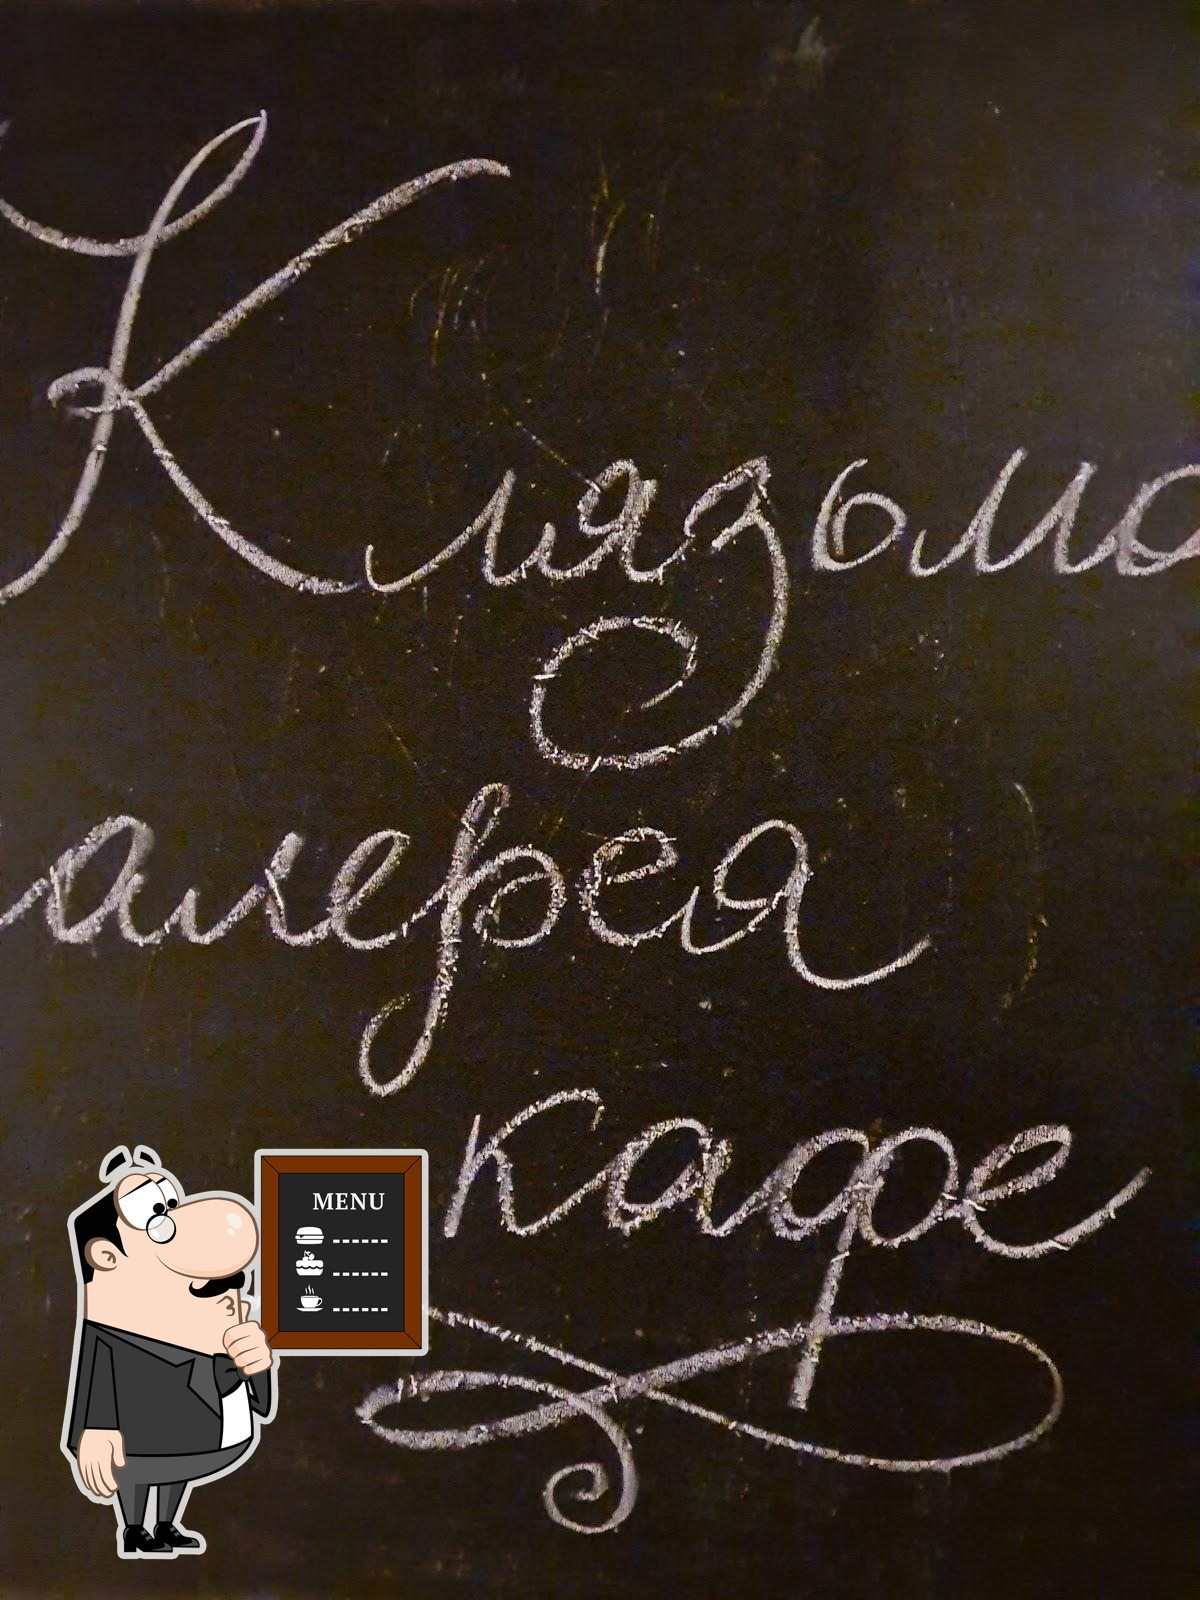 Клязьма
алерея
кафе
MENU